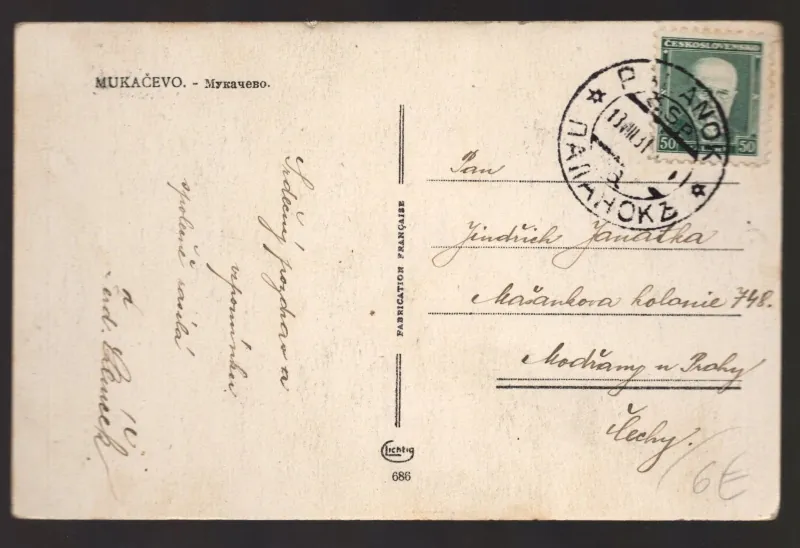 MUKAČEVO. - Мукачево.
Srdečný pozdrav a
vzpomínku
společně zasílá
a
FABRICATION FRANÇAISE
Lichtig
686
ČESKOSLOVENSKO
50 50
13.VIII.31
ПАЛАНОКЪ
Pan
Jindřich Janatka
kolonie 748.
Modřany u Prahy
Čechy.
6€